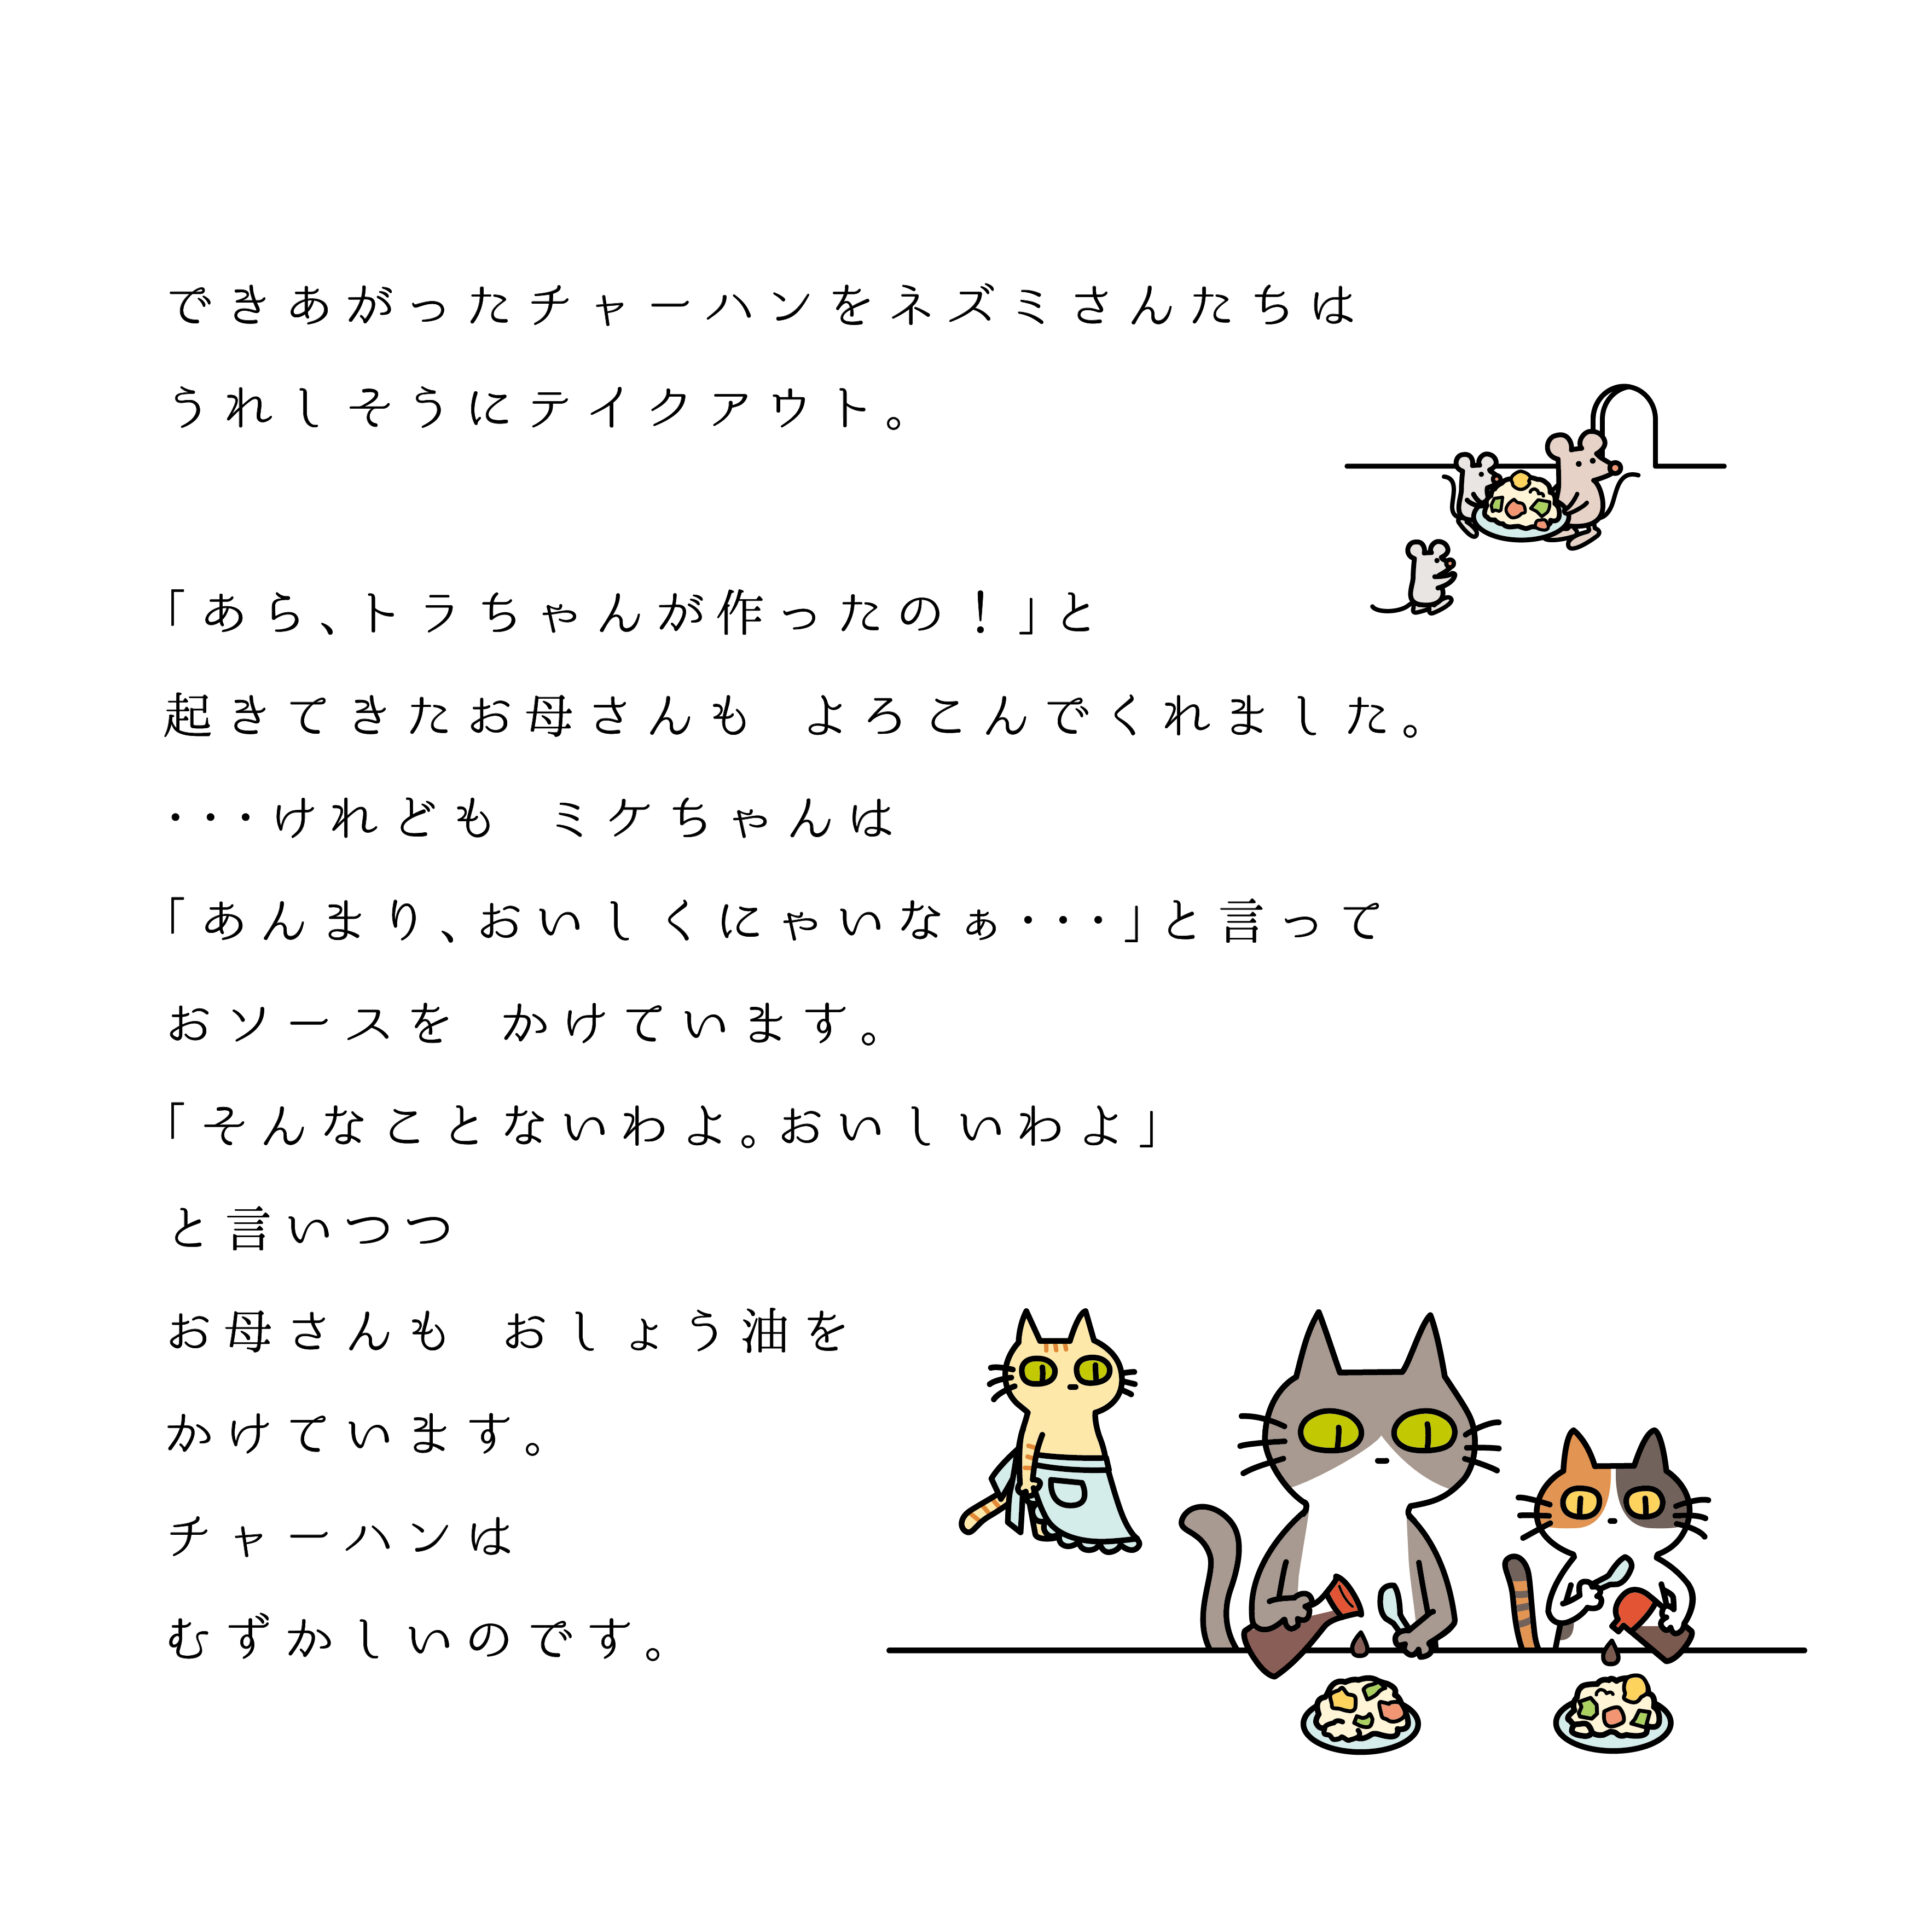 できあがったチャーハンをネズミさんたちは
うれしそうにテイクアウト。
「あら、トラちゃんが作ったの！」と
起きてきたお母さんも よろこんでくれました。
・・・けれども ミケちゃんは
「あんまり、おいしくにゃいなぁ・・・」と言って
おソースを かけています。
「そんなことないわよ。おいしいわよ」
と言いつつ
お母さんも おしょう油を
かけています。
チャーハンは
むずかしいのです。